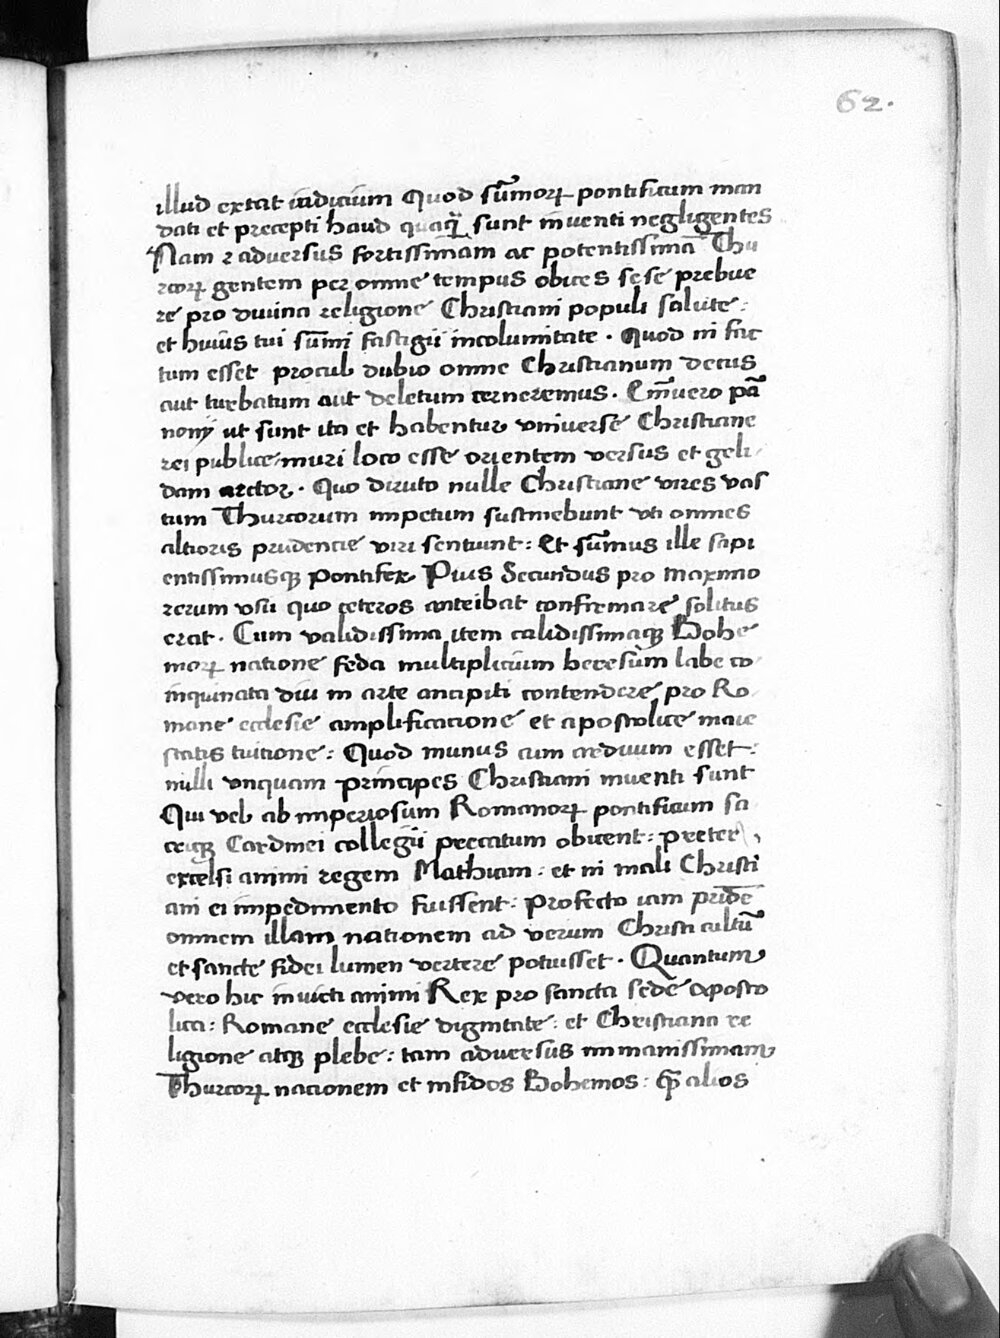 62.
illud extat indicium Quod sūmoꝝ pontificum man
dati et precepti haud quaqꝫ sunt inventi negligentes
Nam ⁊ adversus fortissimam ac potentissimā Thu
rcoꝝ gentem per omne tempus obices sese prebue
re pro divina religione Christiani populi salute:
et huius tui sūmi fastigii incolumitate. Quod ni fac
tum esset procul dubio omne Christianum decus
aut turbatum aut deletum cerneremus. Em̄vero pā
nonij ut sunt ita et habentur universe Christiane
rei publice muri loco esse orientem versus et geli
dam arcton. Quo diruto nulle Christiane vires vas
tum Thurcorum impetum sustinebunt uti omnes
altioris prudencie viri sentiunt: Et sūmus ille sapi
entissimusqꝫ Pontifex Pius Secundus pro maximo
rerum usu quo ceteros anteibat confirmare solitus
erat. Cum validissima item calidissimaqꝫ Bohe
moꝝ natione feda multiplicium heresum labe co
inquinata diu in arte ancipiti contendere pro Ro
mane ecclesie amplificacione et apostolice maie
statis tuitione: Quod munus cum arduum esset:
nulli unquam principes Christiani inventi sunt
Qui vel ab imperiosum Romanoꝝ pontificum sa
creiqꝫ Cardinei collegii precatum obirent: preter
excelsi animi regem Mathiam: et ni mali Christi
ani ei impedimento fuissent: Profecto iam pridē
omnem illam nationem ad verum Christi cultū
et sancte fidei lumen vertere potuisset. Quantum
vero hic invicti animi Rex pro sancta sede aposto
lica: Romane ecclesie dignitate: et Christiana re
ligione atqꝫ plebe: tam adversus immanissimam
Thurcoꝝ nacionem et infidos Bohemos: qꝫ alios